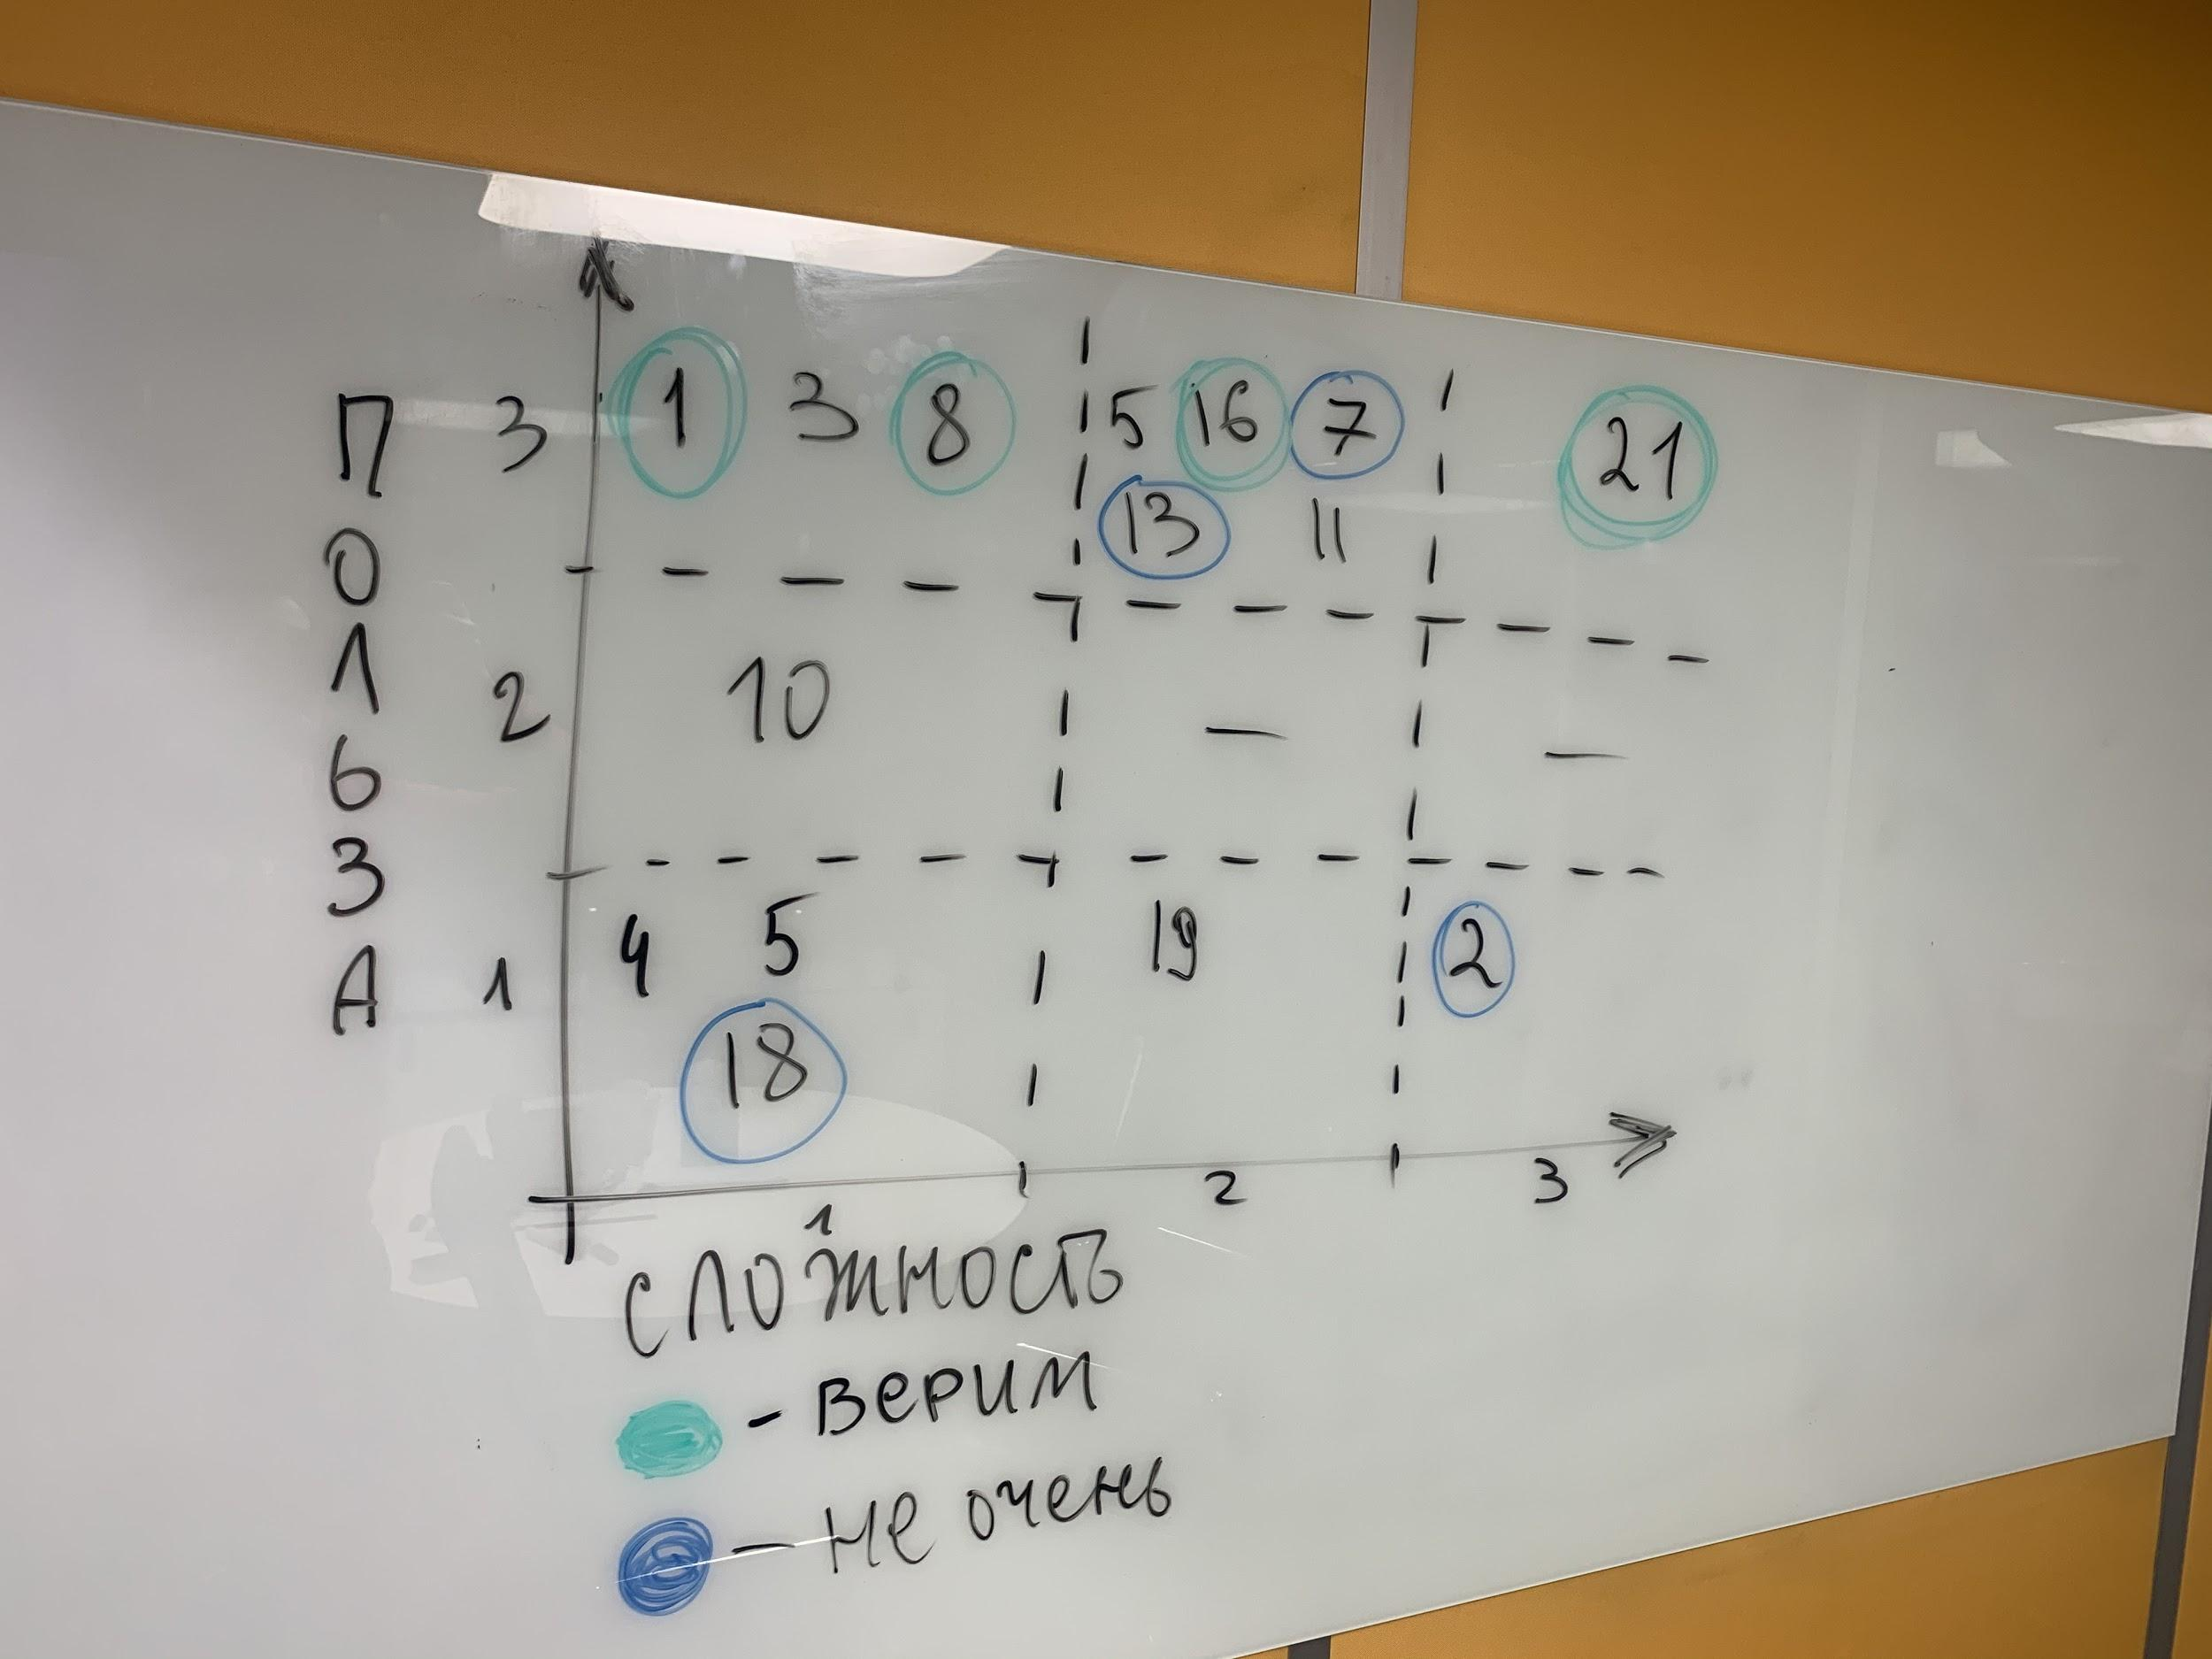 ПОЛЬЗА
3 1 3 8 5 16 7 21
13 11
2 10 — —
1 4 5 19 2
18
1 2 3
СЛОЖНОСТЬ
- ВЕРИМ
- НЕ ОЧЕНЬ